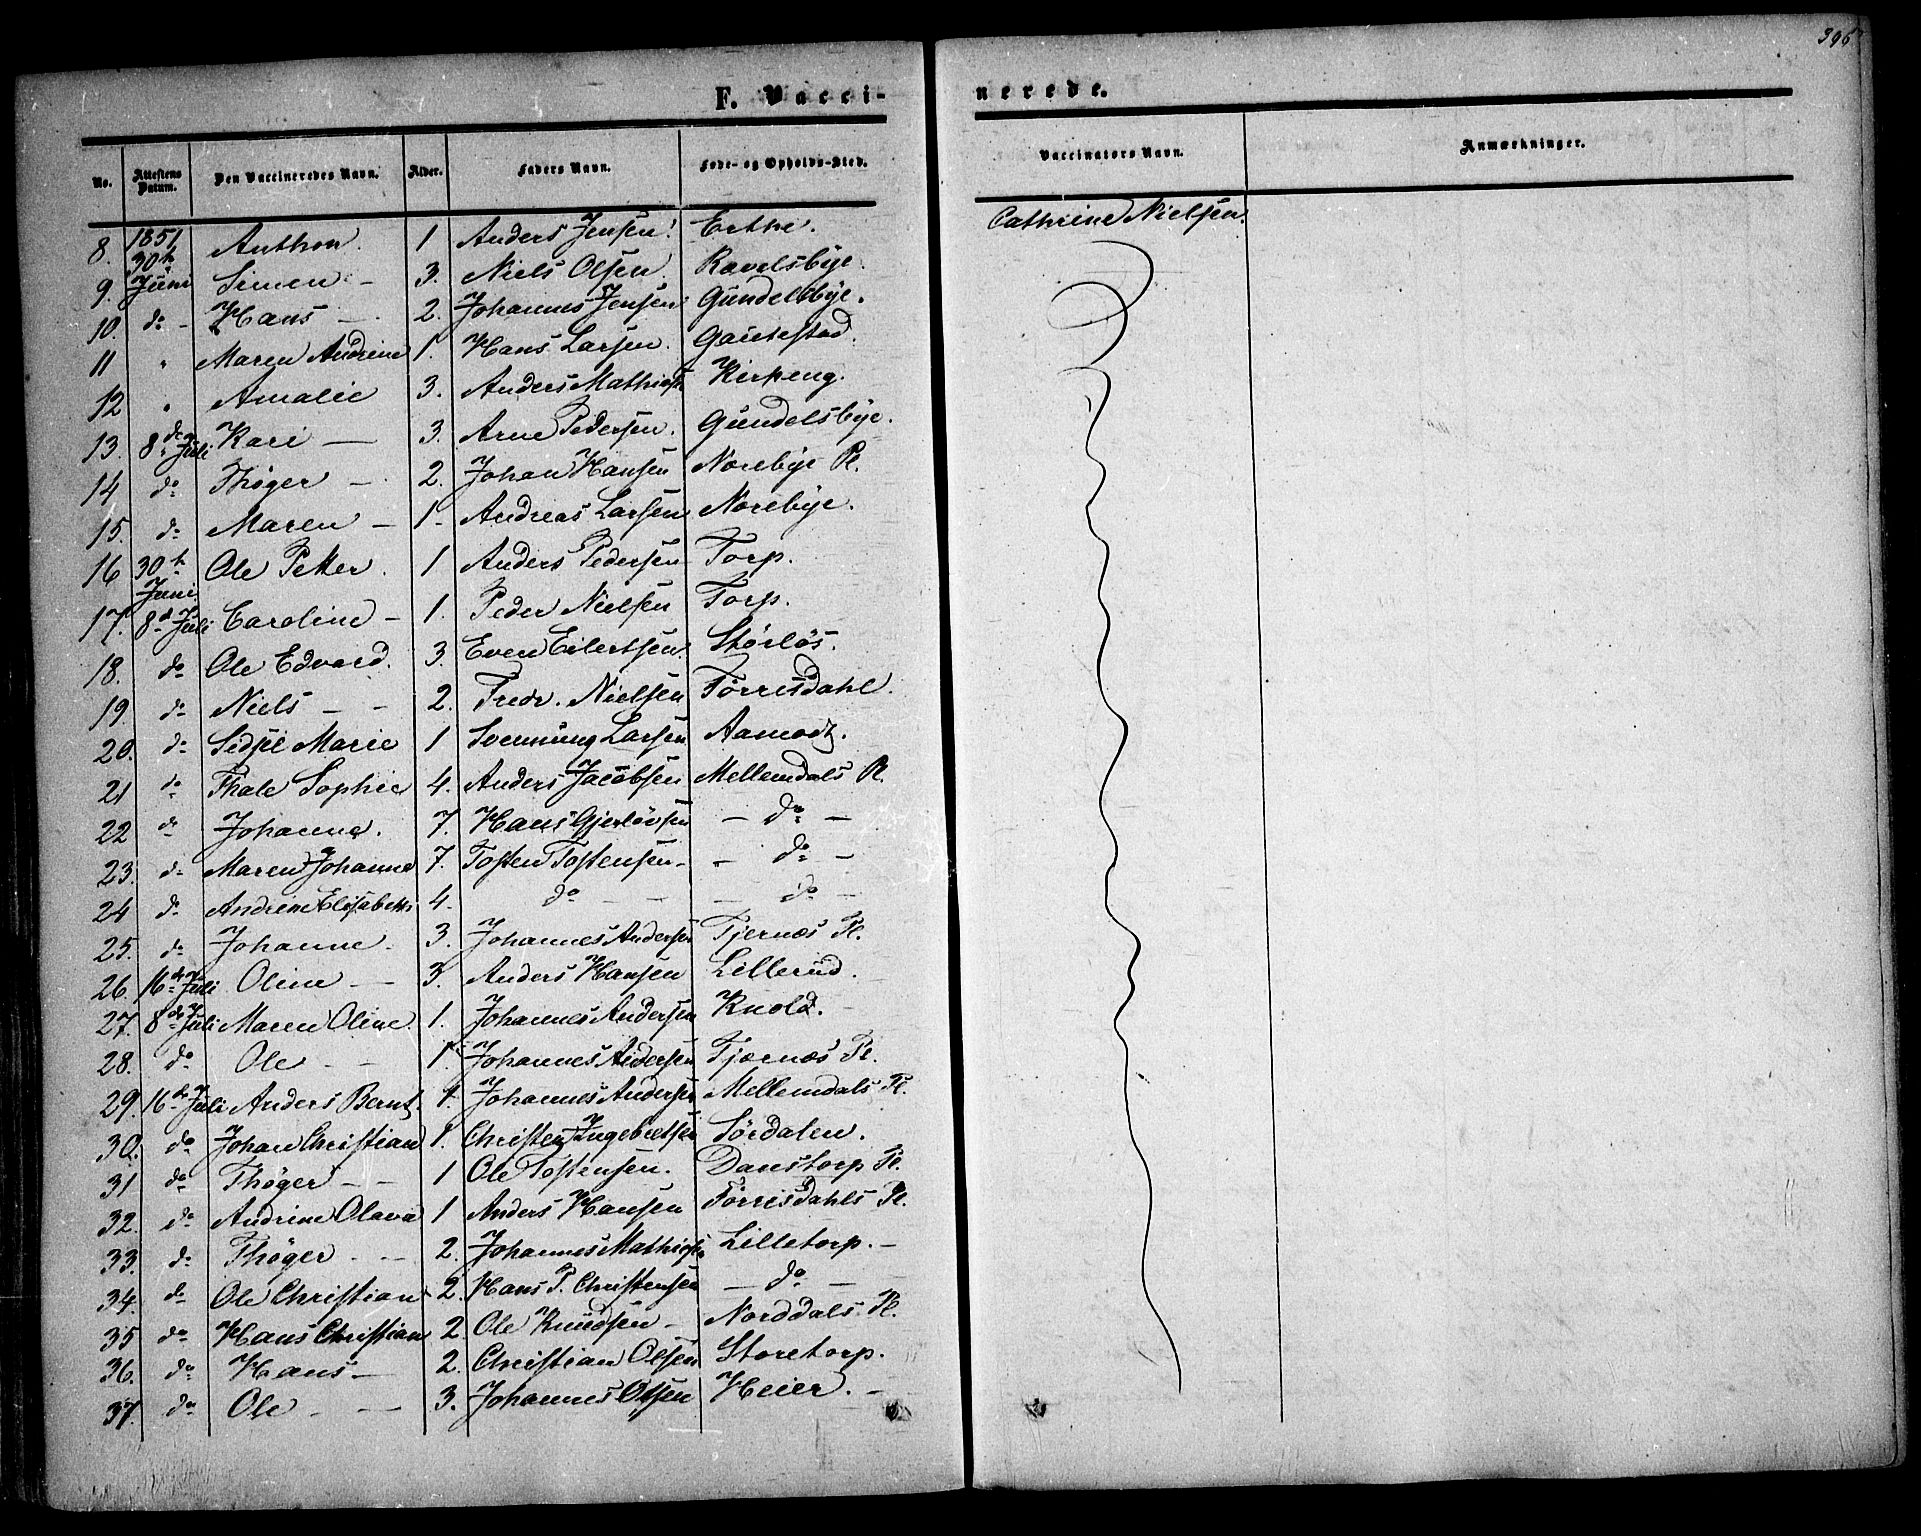 396
F. Vacci-
nerede.
No. Attestens Datum. Den Vaccineredes Navn. Alder. Faders Navn. Føde- og Opholds-Sted. Vaccinators Navn. Anmærkninger.
8. 1851 30th Anthon. 1 Anders Jensen. Erthe. Cathrine Nielsen.
9. Juni Simen - 3. Niels Olsen. Ravelsbye.
10. do - Hans - 2. Johannes Jensen Gundelsbye.
11 " Maren Andrine 1. Hans Larsen. Gautestad.
12 " Amalie 3. Anders Mathies. Kirkeng.
13. 8de Juli Kari - 3. Arne Pedersen. Gundelsbye.
14 do Thøger - 2. Johan Hansen Norebye Pl.
15. do Maren - 1. Andreas Larsen Norebye.
16 30th Juni Ole Petter. 1 Anders Pedersen Torp.
17. 8de Juli Caroline - 1. Peder Nielsen Torp.
18. do Ole Edvard. 3. Even Eilertsen. Störlös.
19 do Niels - - 2. Fredr. Nielsen Torrisdahl.
20. do Sidsel Marie 1 Svennung Larsen Aamodt.
21 do Thale Sophie 4. Anders Jacobsen Mellemdals Pl.
22 do Johanne. 7. Hans Gjerløvsen - do -
23. do Maren Johanne 7. Tosten Tostensen - - do -
24 do Andrine Elisabeth 4. do - - - do -
25. do Johanne. 3. Johannes Andersen Tjernæs Pl.
26. 16de Juli Oline - 3. Anders Hansen Lillerud.
27. 8de Juli Maren Oline. 1. Johannes Andersen Knold. -
28. do Ole - - 1. Johannes Andersen Tjernæs Pl.
29. 16de Juli Anders Bernt. 1. Johannes Andersen Mellemdals Pl.
30. do Johan Christian 1. Christen Ingebretsen Sørdalen.
31 do Thøger - - 1 Ole Tostensen. Danstorp Pl.
32. do Andrine Olava 1 Anders Hansen Torrisdahls Pl.
33. do Thøger - - 2. Johannes Mathies. Lilletorp. -
34. do Ole Christian 2. Hans P. Christensen - do -
35 do Hans Christian 2. Ole Knudsen - Norddals Pl.
36. do Hans - 2. Christian Olsen Storetorp.
37. do Ole - - 3. Johannes Olsen Heier. -